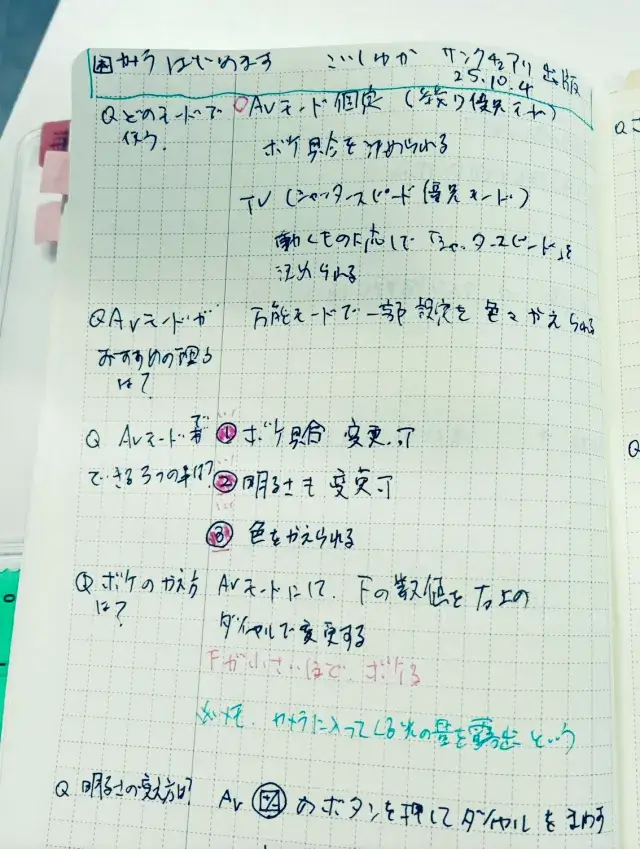 カメラはじめます こいしゆうか サンクチュアリ出版
25.10.4
Q どのモードで使う?
○Avモード固定 (絞り優先モード)
ボケ具合を決められる
TV (シャッタースピード優先モード)
動くものに応じて「シャッタースピード」を
決められる
Q Avモードが
おすすめの理由
は?
万能モードで一部設定を色々かえられる
Q Avモードで
できる3つの事は?
① ボケ具合 変更可
② 明るさも変更可
③ 色をかえられる
Q ボケのかえ方
は?
Avモードにして、Fの数値を右上の
ダイヤルで変更する
Fが小さいほど、ボケる
※メモ、カメラに入ってくる光の量を露出という
Q 明るさの変え方は?
Av のボタンを押してダイヤルをまわす
Q
Q